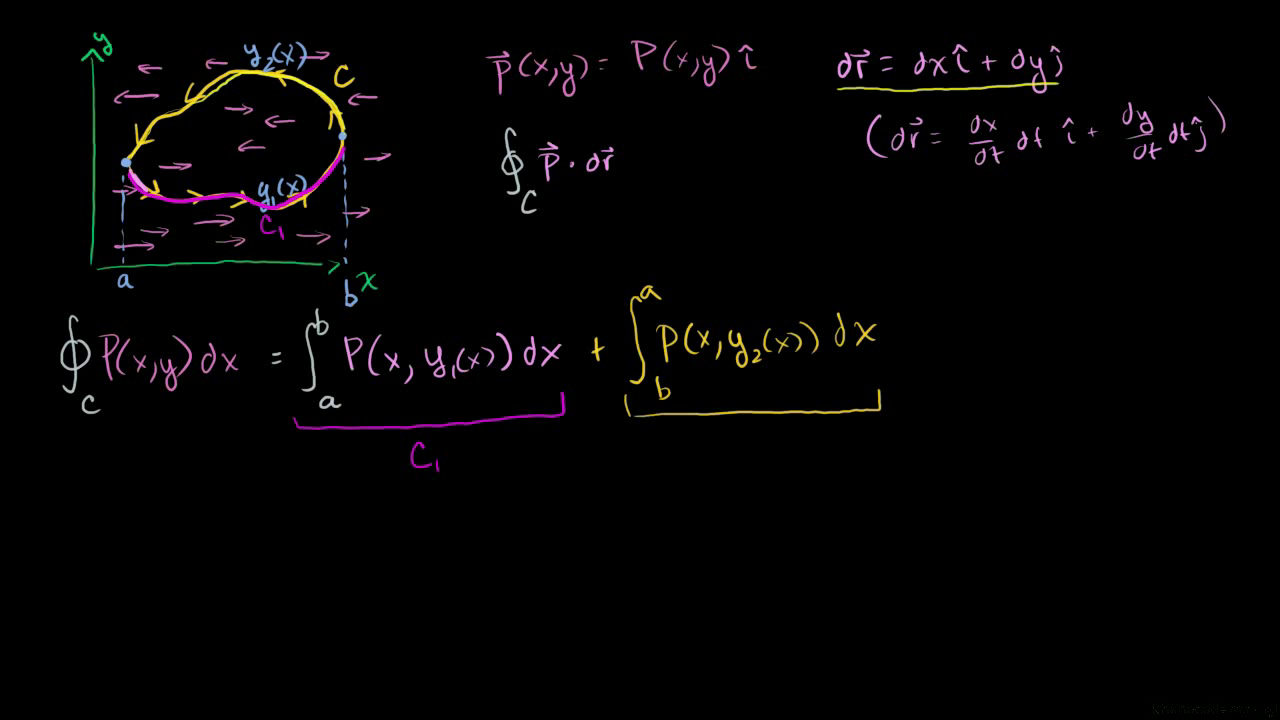 y
y₂(x)
C
y₁(x)
C₁
a
b
x
p⃗(x,y) = P(x,y) î
dr⃗ = dx î + dy ĵ
(dr⃗ = dx/dt dt î + dy/dt dt ĵ)
∮_C p⃗ · dr⃗
∮_C P(x,y) dx = ∫_a^b P(x, y₁(x)) dx + ∫_b^a P(x, y₂(x)) dx
C₁